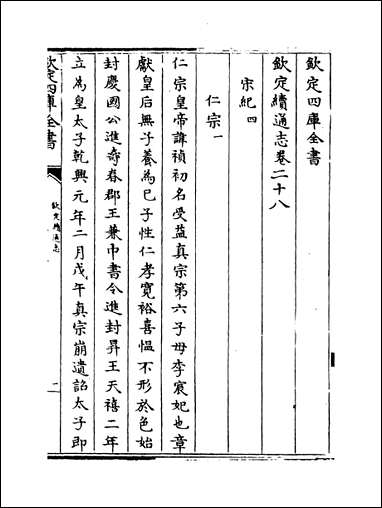 欽定四庫全書
欽定續通志卷二十八
宋紀四
仁宗一
仁宗皇帝諱禎初名受益真宗第六子母李宸妃也章
獻皇后無子養為已子性仁孝寬裕喜愠不形於色始
封慶國公進壽春郡王兼中書令進封昇王天禧二年
立為皇太子乾興元年二月戊午真宗崩遺詔太子即
欽定四庫全書
欽定續通志